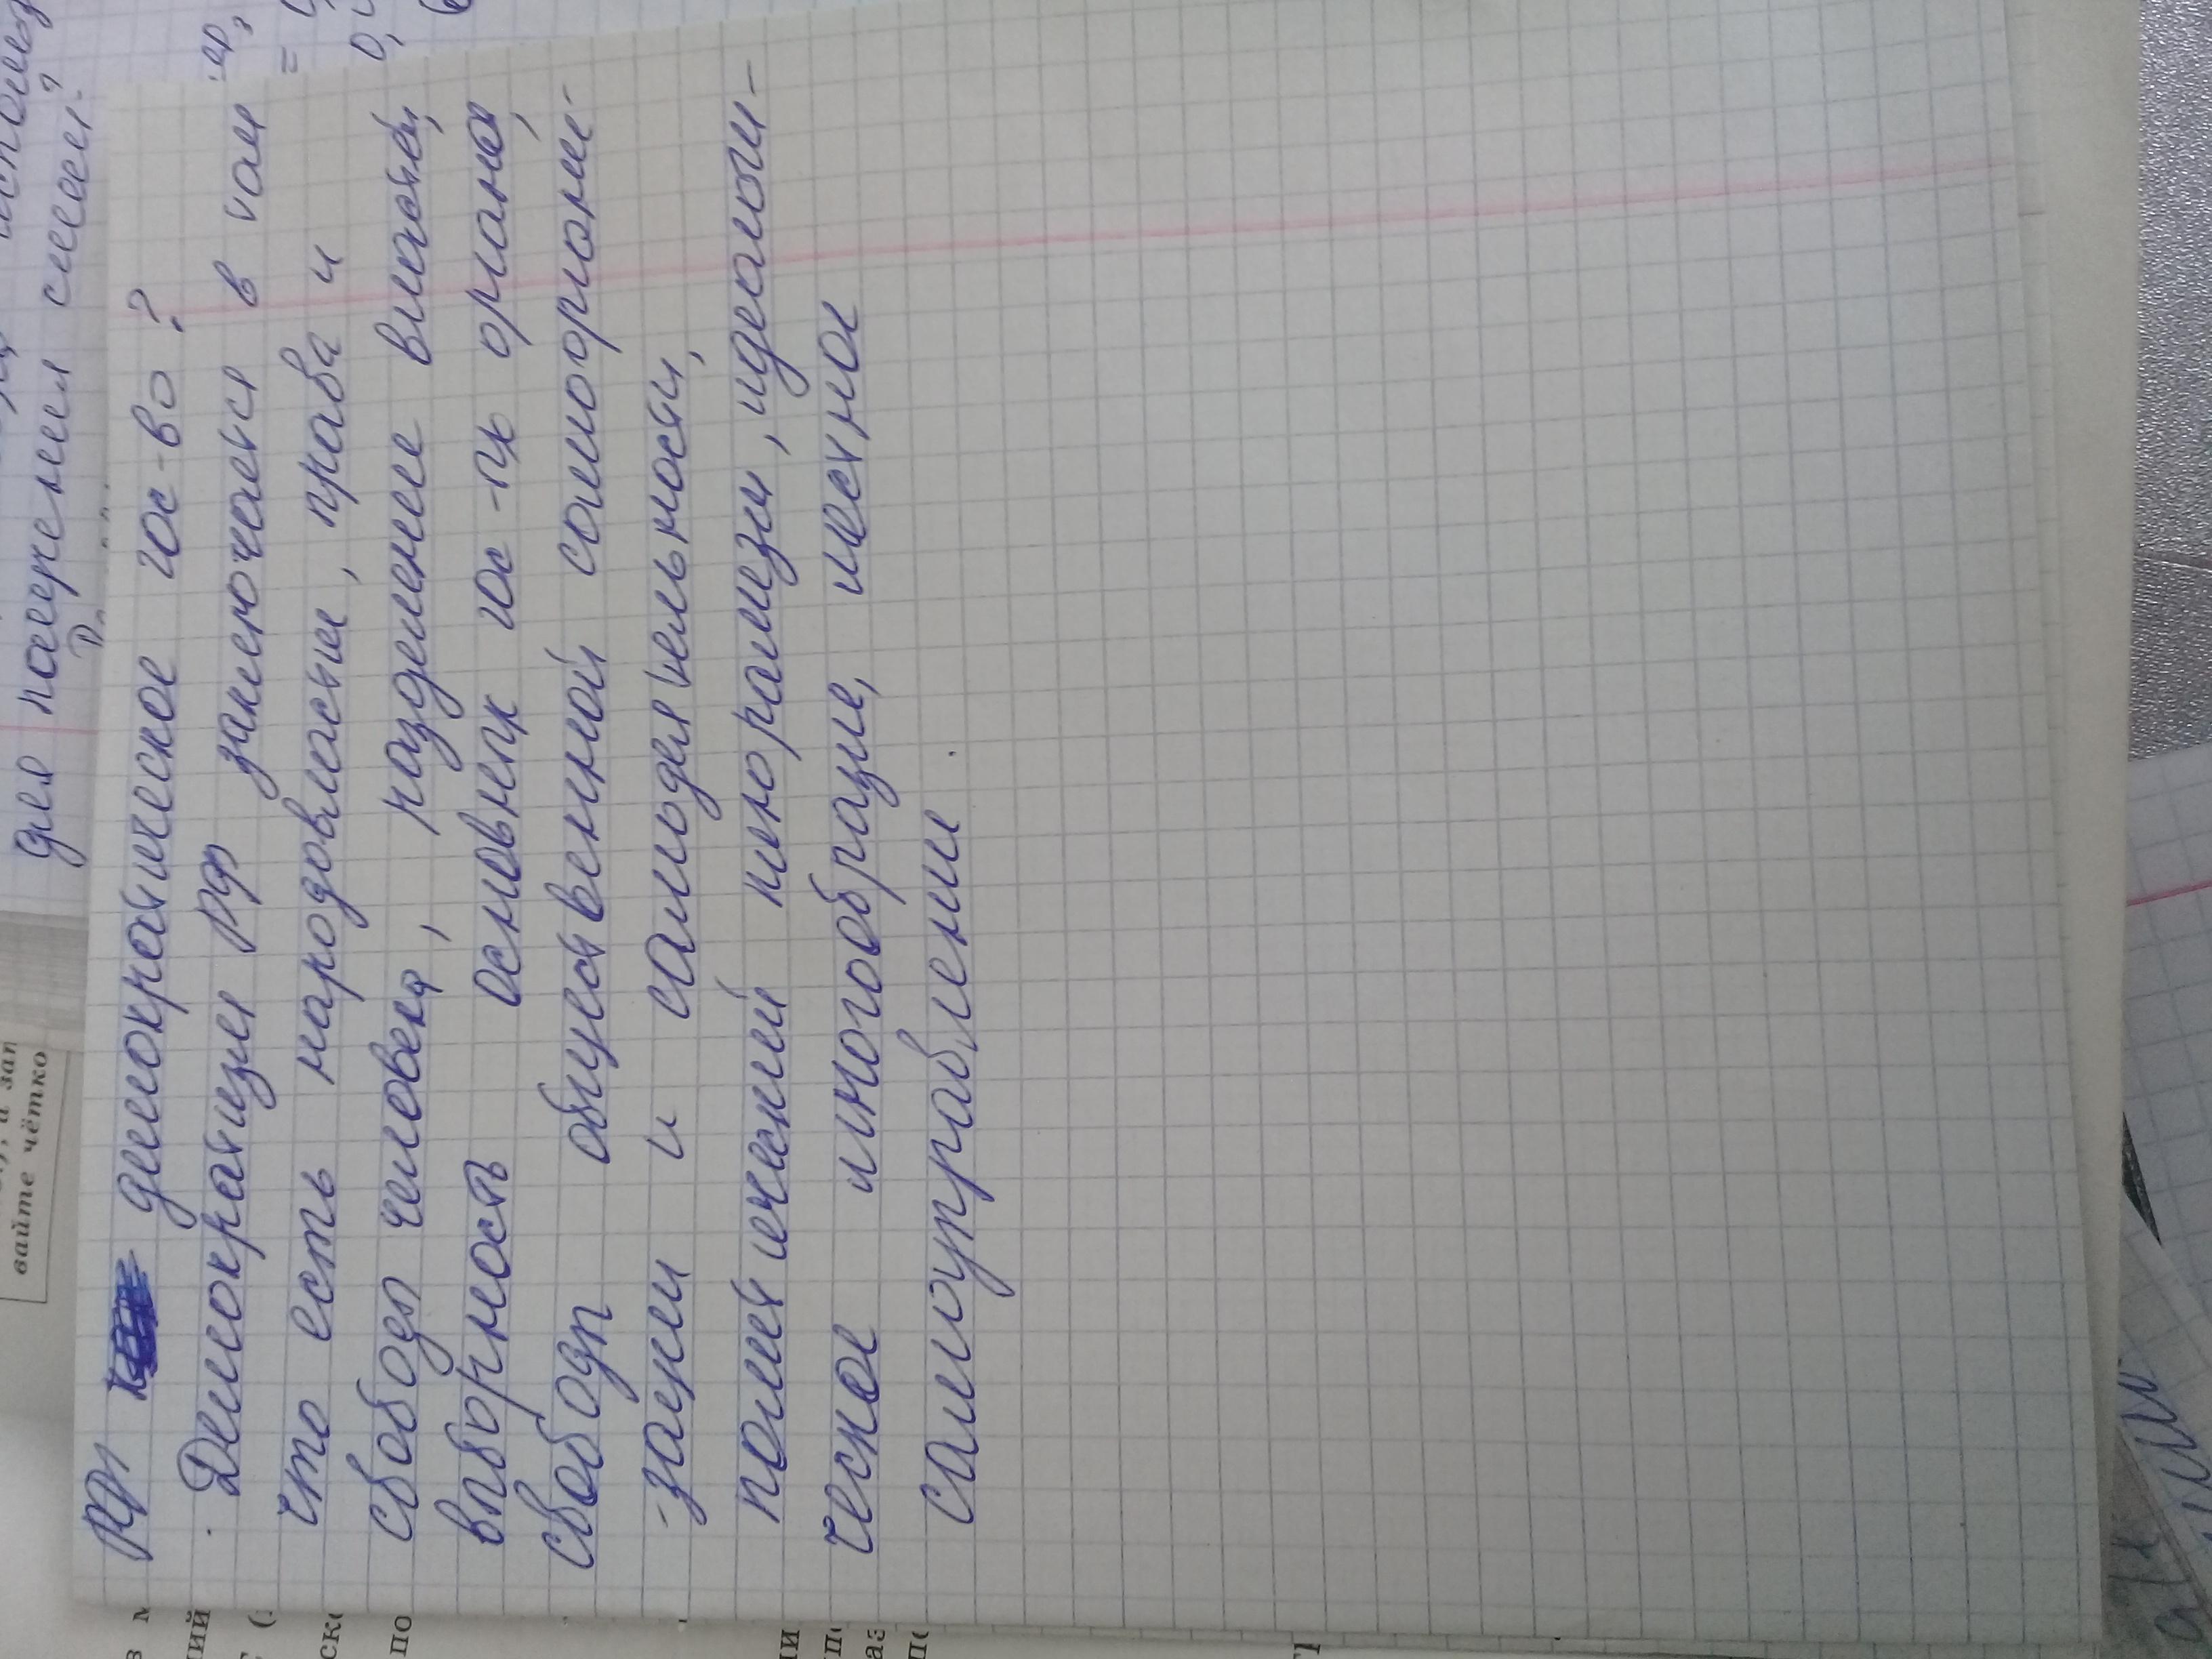 РФ демократическое гос-во?
Демократизм РФ заключается в том
что есть народовластие, права и
свободы человека, разделение властей,
выборность основных гос-ых органов,
свободы общественной самооргани-
-зации и самодеятельности,
политический плюрализм, идеологи-
ческое многообразие, местное
самоуправление.
для
смеси?
вайте чётко